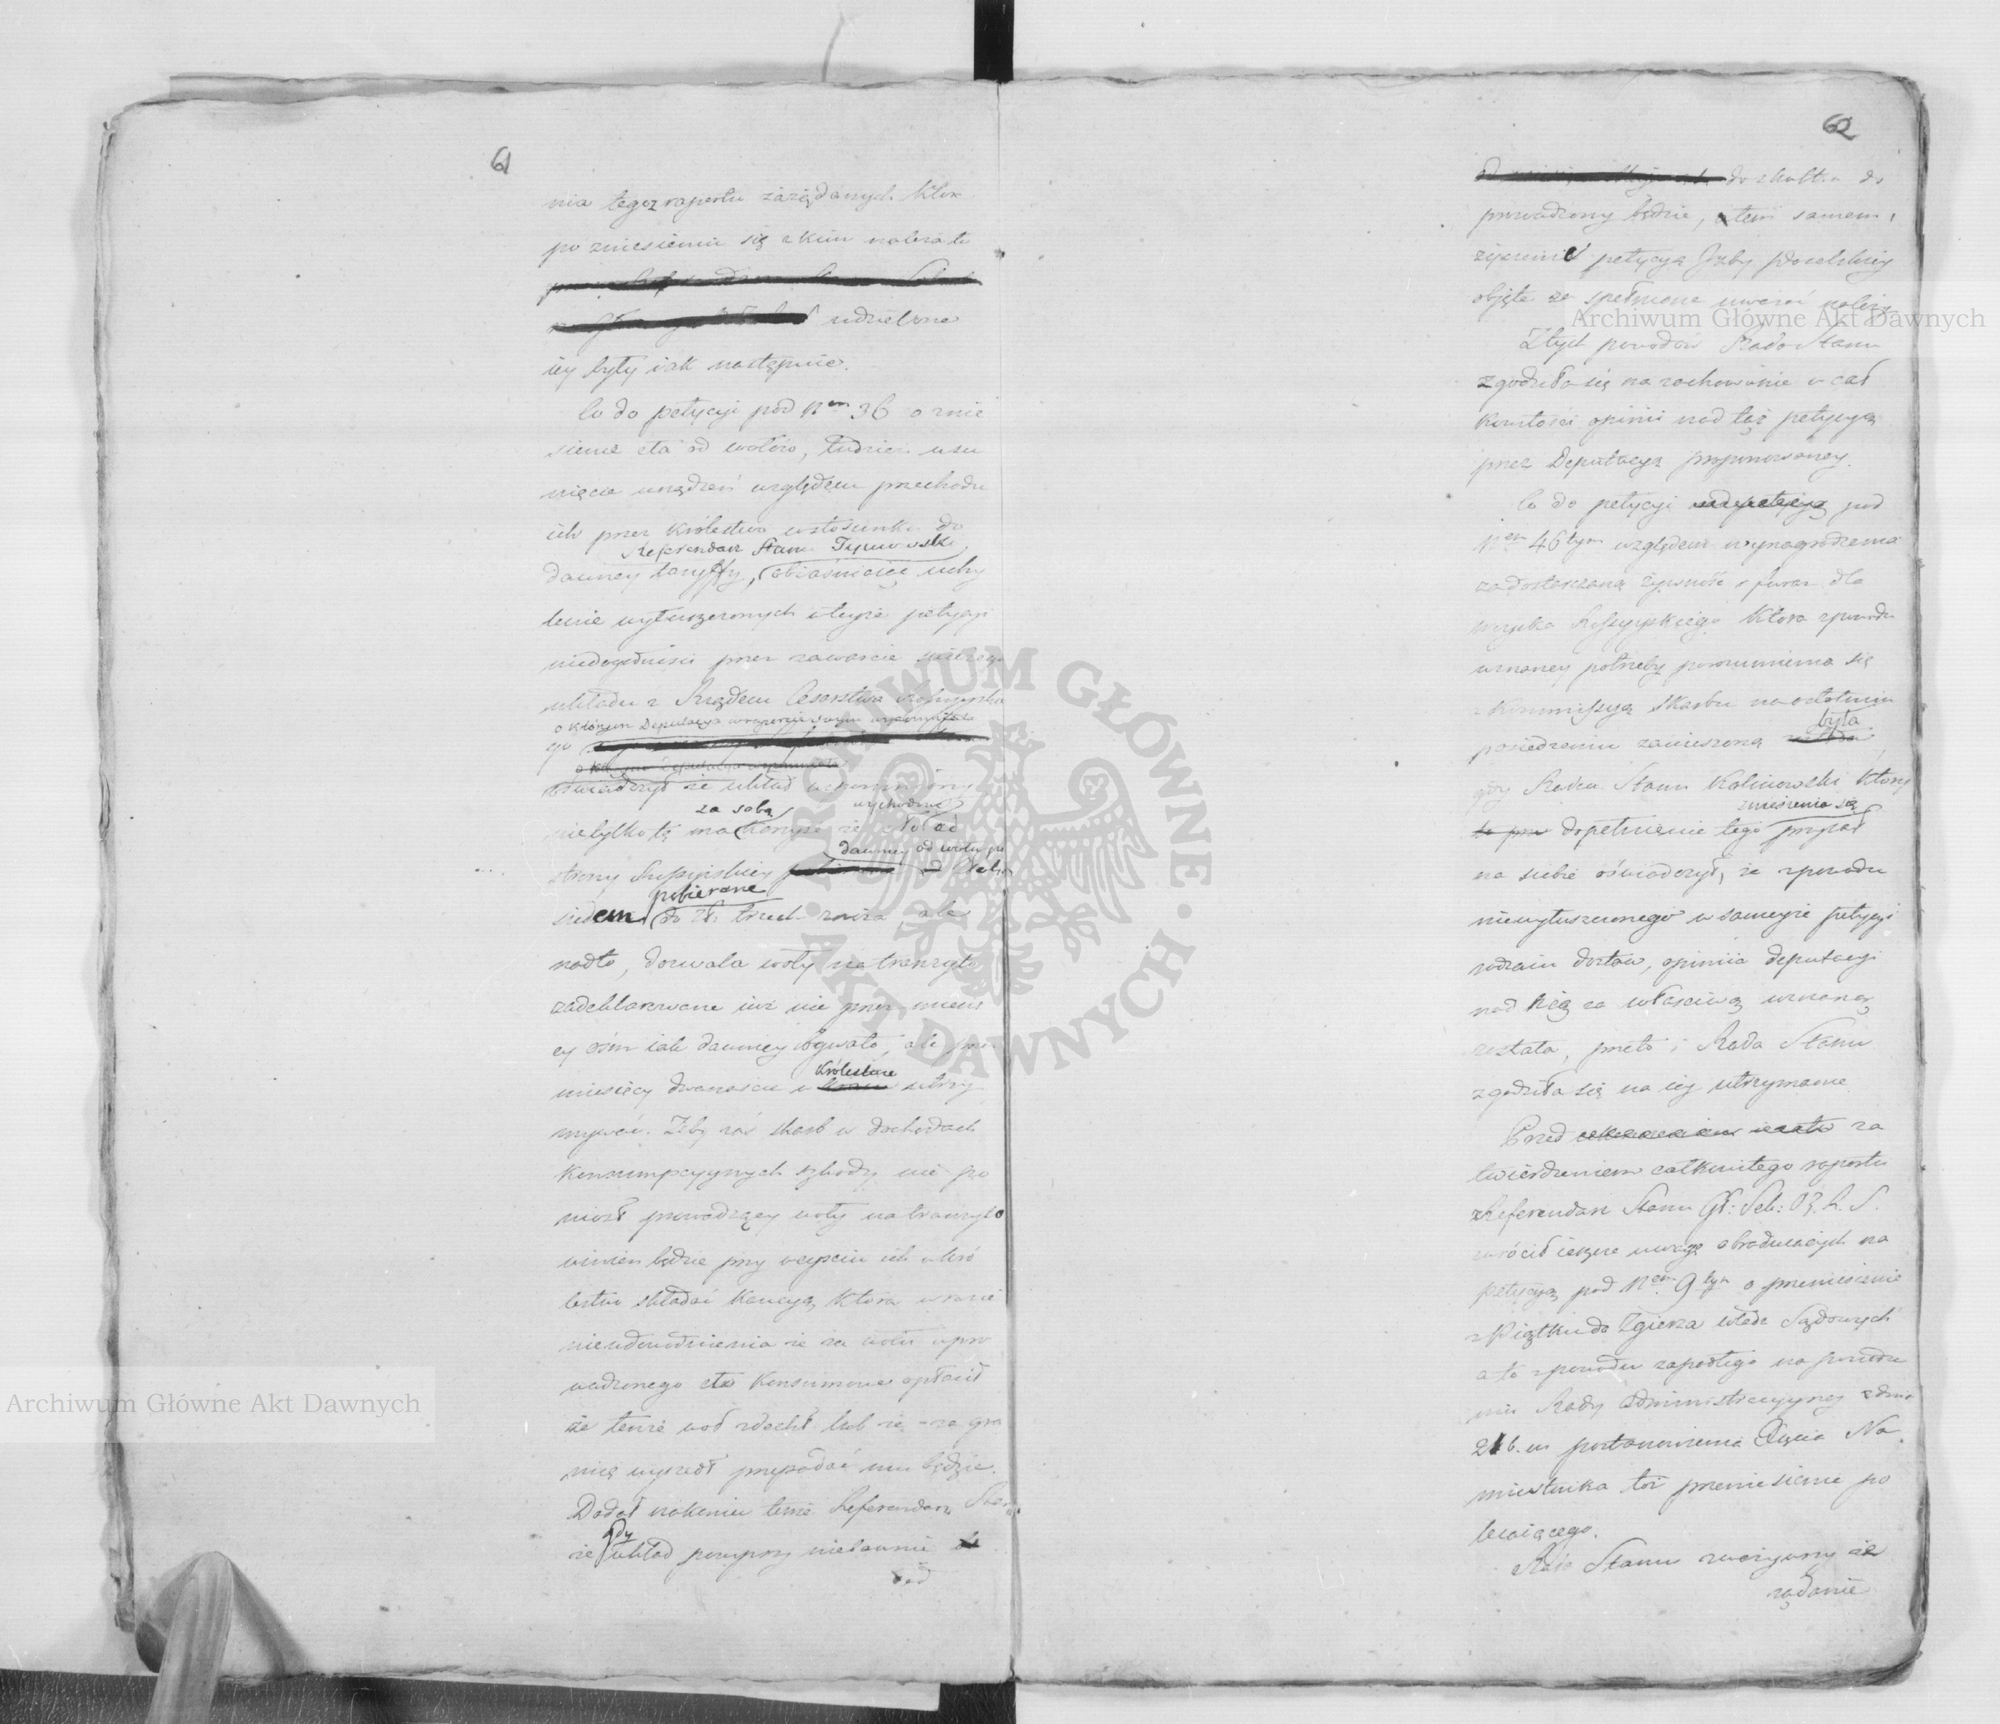 61
nia tegoż raportu zażądanych któr
po zniesieniu się z kim należało
udzielone
iey były iak następuie.
Co do petycyi pod Nem 36 o znie
sienie cła od wołów, tudzież usu
nięcie urządzeń względem przechodu
ich przez Królestwo w stosunku do
Referendarz Stanu Tymowski
dawney taryffy, obiaśniaiąc uchy
lenie wyłuszczonych w teyże petycyi
niedogodności przez zawarcie
układu z Rządem Cesarstwa Rossyyskie
o którym Deputacya w raporcie swym
go
o którym Deputacya
oświadczył że układ wspomniony
za sobą wychodzące
nietylko tę ma korzyść że cło od
dawney od wołu po
strony Rossyiskiey od
pobierane
siedem do Zł. trzech zniża ale
nadto, dozwala woły na tranzyto
zadeklarowane iuż nie przez miesię
cy ośm iak dawney bywało, ale przez
Królestwie
miesięcy dwanaście w utrzy
mywać. Żeby zaś skarb w dochodach
konsumpcyynych szkody nie po
niósł prowadzący woły na tranzyto
winien będzie przy weyściu ich w Kró
lestwo składać kaucyą, która w razie
nieudowodnienia że za wołu wpro
wadzonego cło konsumowe opłacił
że tenże woł zdechł lub że za gra
nicę wyszedł przepadać mu będzie.
Dodał nakoniec tenże Referendarz Stanu
gdy
że układ powyższy niedawno
od
62
do skutku do
prowadzony będzie, tem samem i
życzenie petycyą Izby Poselskiey
objęte za spełnione uważać należy.
Z tych powodów Rada Stanu
zgodziła się na zachowanie w cał
kowitości opinii nad tąż petycyą
przez Deputacyą proponowaney.
Co do petycyi nad petycyą pod
Nem 46tym względem wynagrodzenia
za dostarczaną żywność i furaż dla
woyska Rossyyskiego która z powodu
uznaney potrzeby porozumienia się
z Kommissyą Skarbu na ostatniem
była
posiedzeniu zawieszoną
gdy Radca Stanu Kalinowski który
zniesienia się
dopełnienie tego przyiął
na siebie oświadczył, że z powodu
niewyłuszczonego w sameyże petycyi
rodzaiu dostaw, opiniia deputacyi
nad nią za właściwą uznaną
została, przeto i Rada Stanu
zgodziła się na iey utrzymanie.
Przed za
twierdzeniem całkowitego raportu
Referendarz Stanu Gł: Sek: R. S.
zwrócił ieszcze uwagę obraduiących na
petycyą pod Nem 9tym o przeniesienie
z Piątku do Zgierza władz Sądowych
a to z powodu zapadłego na posiedze
niu Rady Administracyyney z dnia
21 b. m. postanowienia Xięcia Na
miestnika toż przeniesienie po
lecaiącego.
Rada Stanu zważywszy że
żądanie
Archiwum Główne Akt Dawnych
Archiwum Główne Akt Dawnych
ARCHIWUM GŁÓWNE · AKT DAWNYCH ·